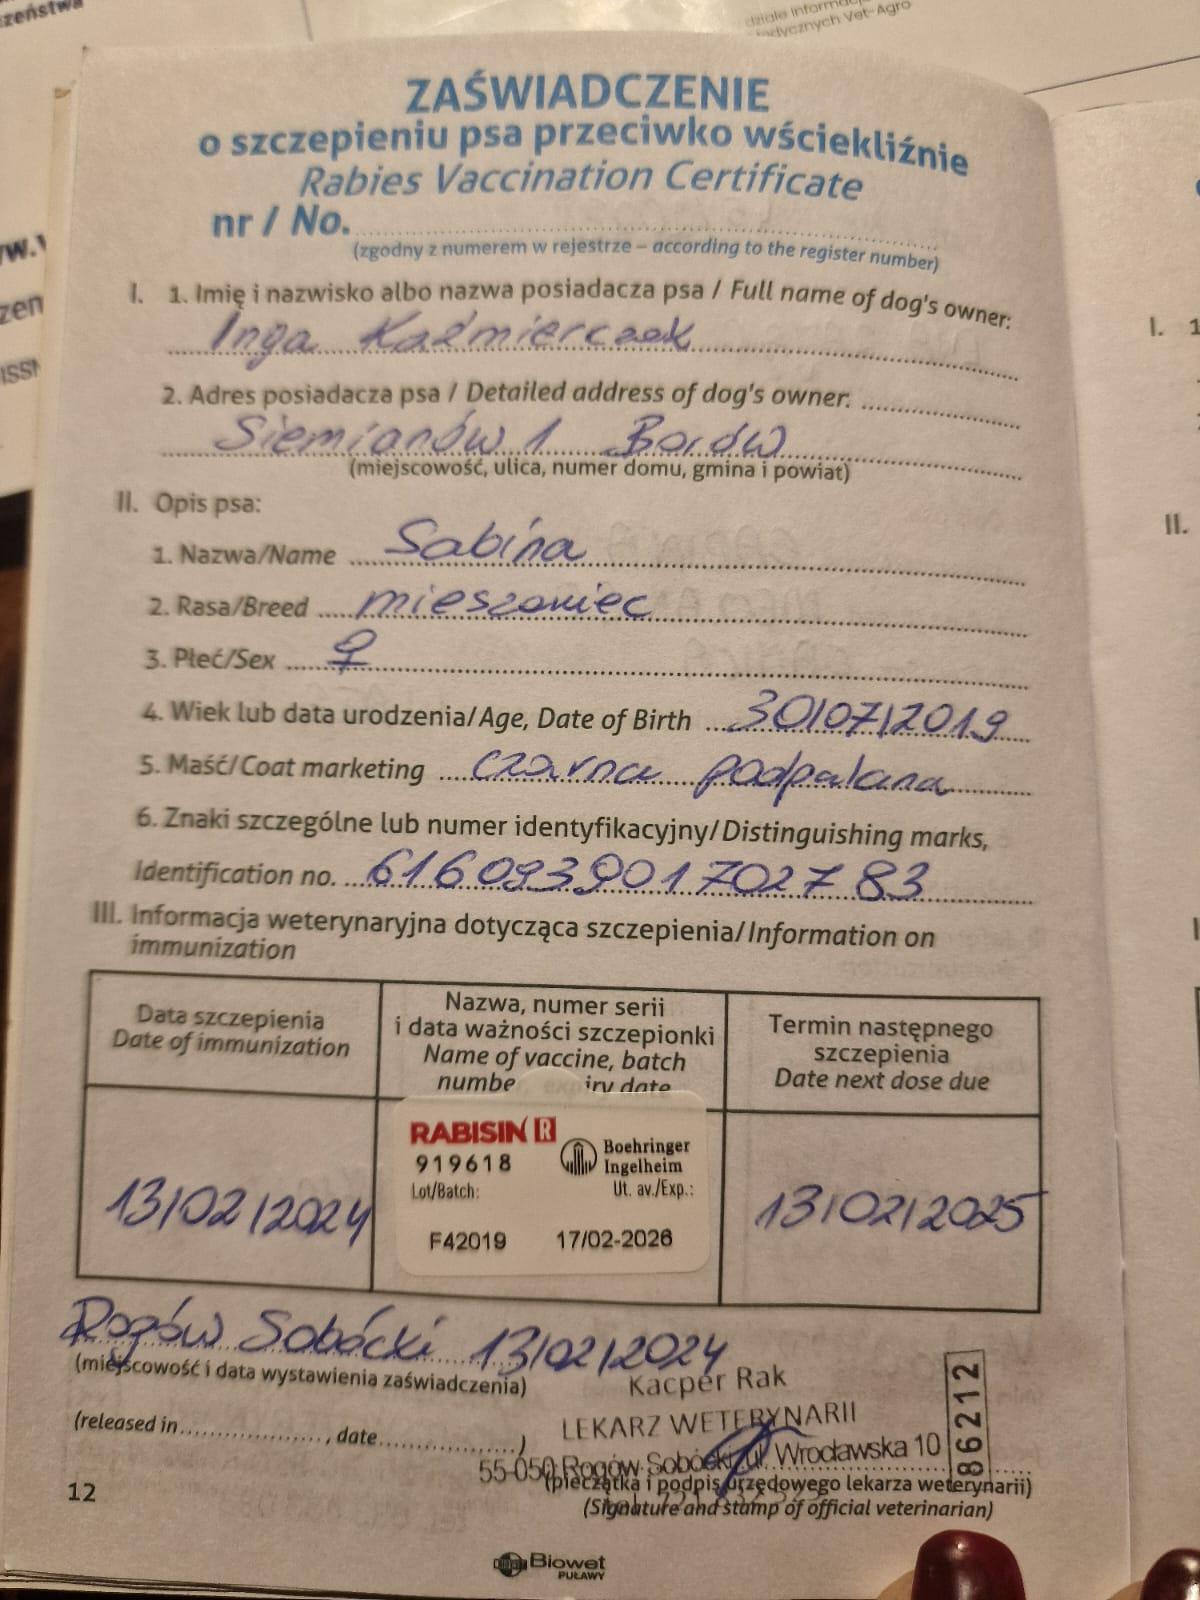 zeństwa
dziale informac
edycznych Vet-Agro
ZAŚWIADCZENIE
o szczepieniu psa przeciwko wściekliźnie
Rabies Vaccination Certificate
nr / No.
(zgodny z numerem w rejestrze – according to the register number)
I. 1. Imię i nazwisko albo nazwa posiadacza psa / Full name of dog's owner:
Inga Kaźmierczak
2. Adres posiadacza psa / Detailed address of dog's owner:
Siemianów 1 Borów
(miejscowość, ulica, numer domu, gmina i powiat)
II. Opis psa:
1. Nazwa/Name Sabina
2. Rasa/Breed mieszaniec
3. Płeć/Sex ♀
4. Wiek lub data urodzenia/Age, Date of Birth 30/07/2019
5. Maść/Coat marketing czarna podpalana
6. Znaki szczególne lub numer identyfikacyjny/Distinguishing marks,
Identification no. 616093901702783
III. Informacja weterynaryjna dotycząca szczepienia/Information on
immunization
Data szczepienia
Date of immunization
Nazwa, numer serii
i data ważności szczepionki
Name of vaccine, batch
numbe expiry date
Termin następnego
szczepienia
Date next dose due
13/02/2024
RABISIN R
919618
Boehringer
Ingelheim
Lot/Batch: Ut. av./Exp.:
F42019 17/02-2026
13/02/2025
Rogów Sobócki 13/02/2024
(miejscowość i data wystawienia zaświadczenia)
(released in, date)
Kacper Rak
LEKARZ WETERYNARII
55-050 Rogów Sobócki, ul. Wrocławska 10
86212
(pieczątka i podpis urzędowego lekarza weterynarii)
(Signature and stamp of official veterinarian)
12
Biowet
PUŁAWY
I. 1
II.